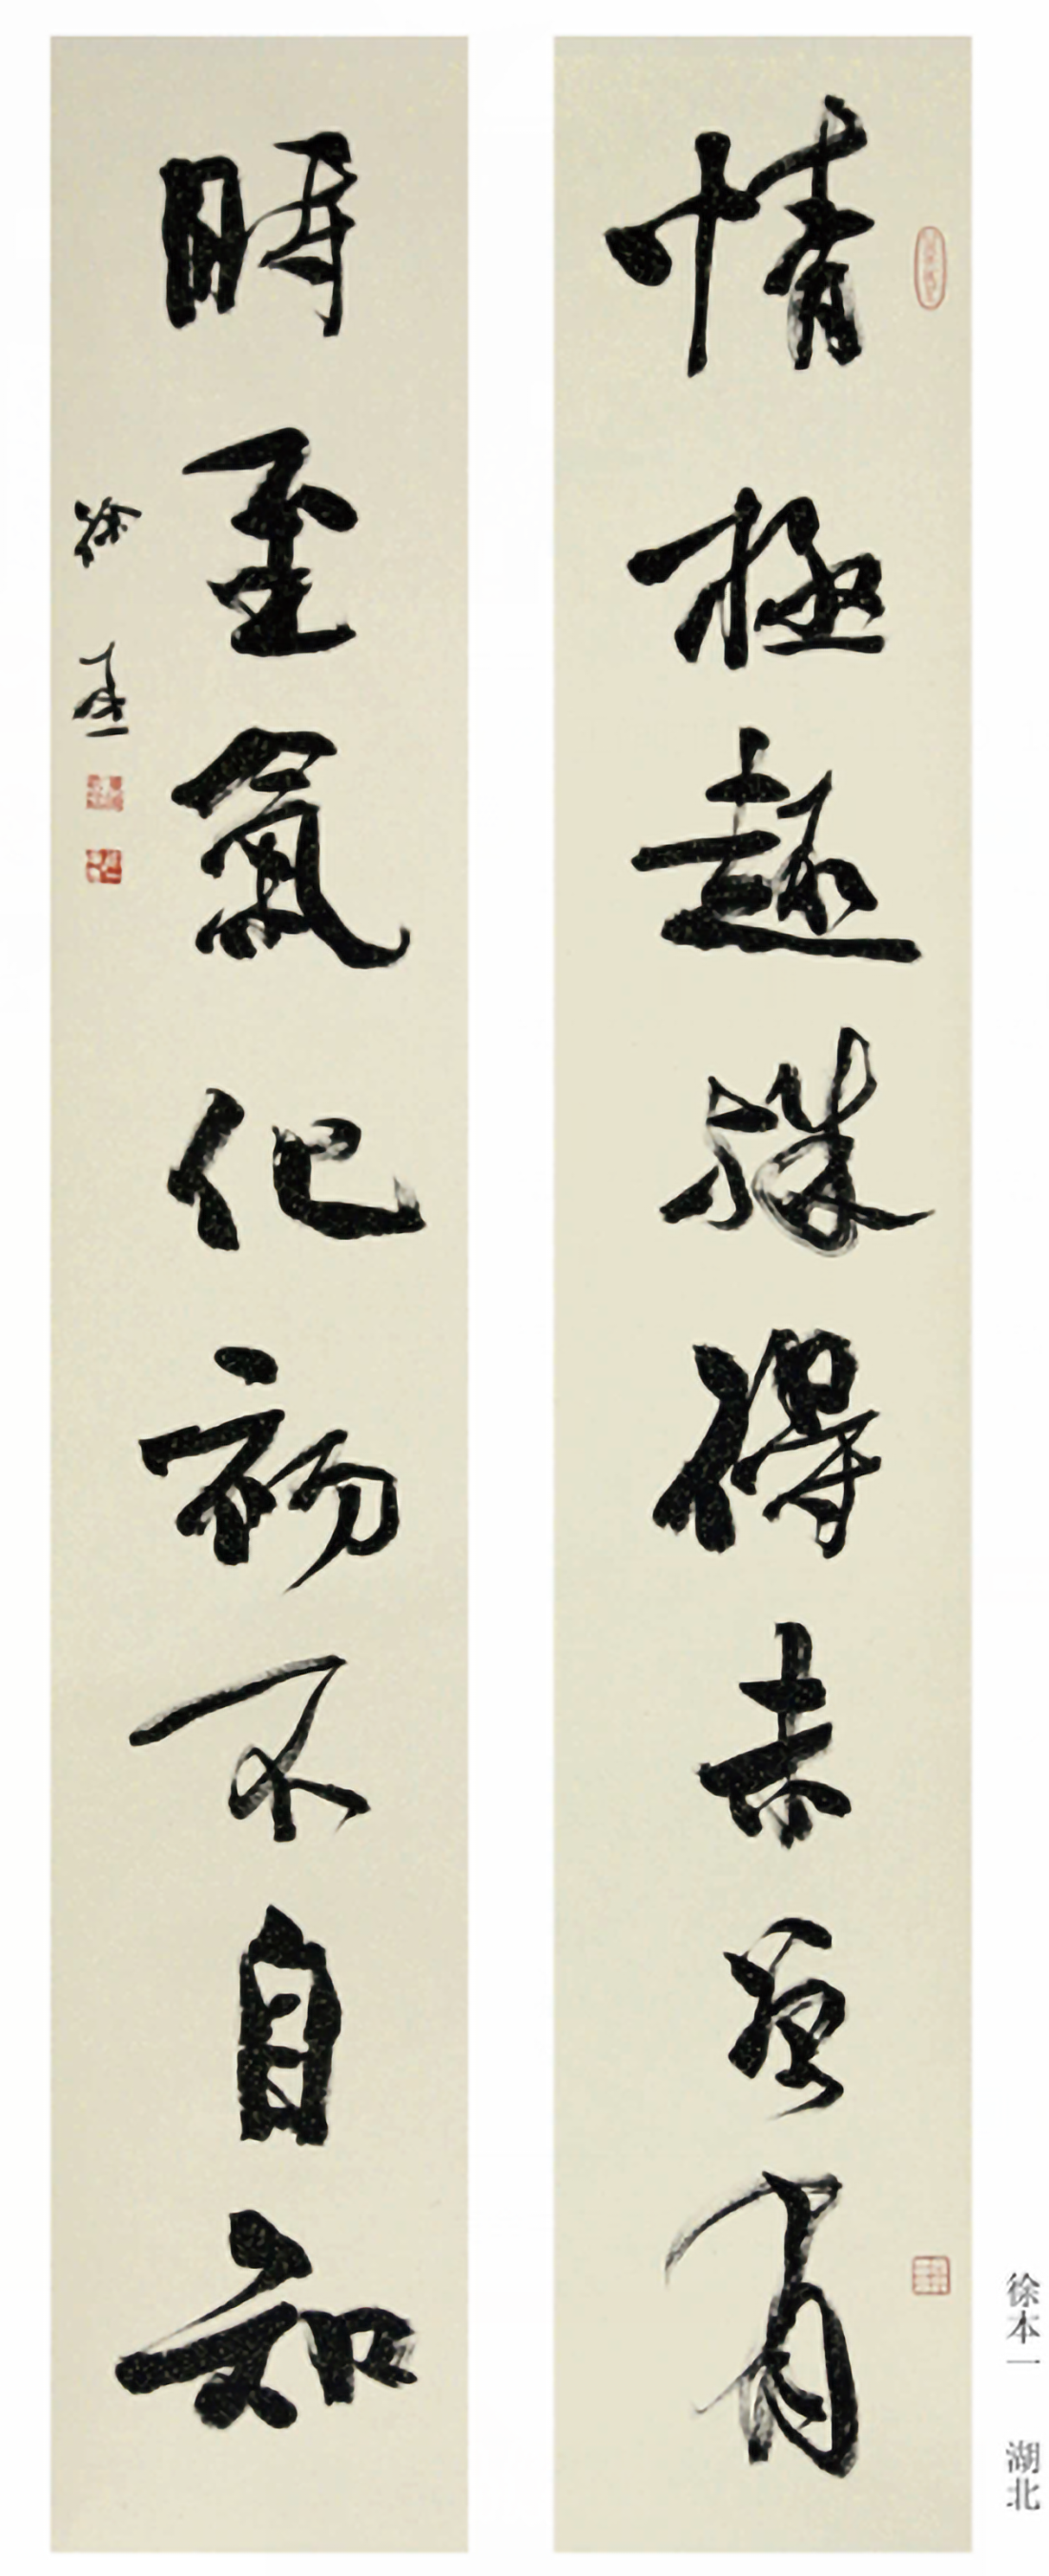 情極趣殊得未曾有
時至氣化初不自知
徐本一
徐本一 湖北